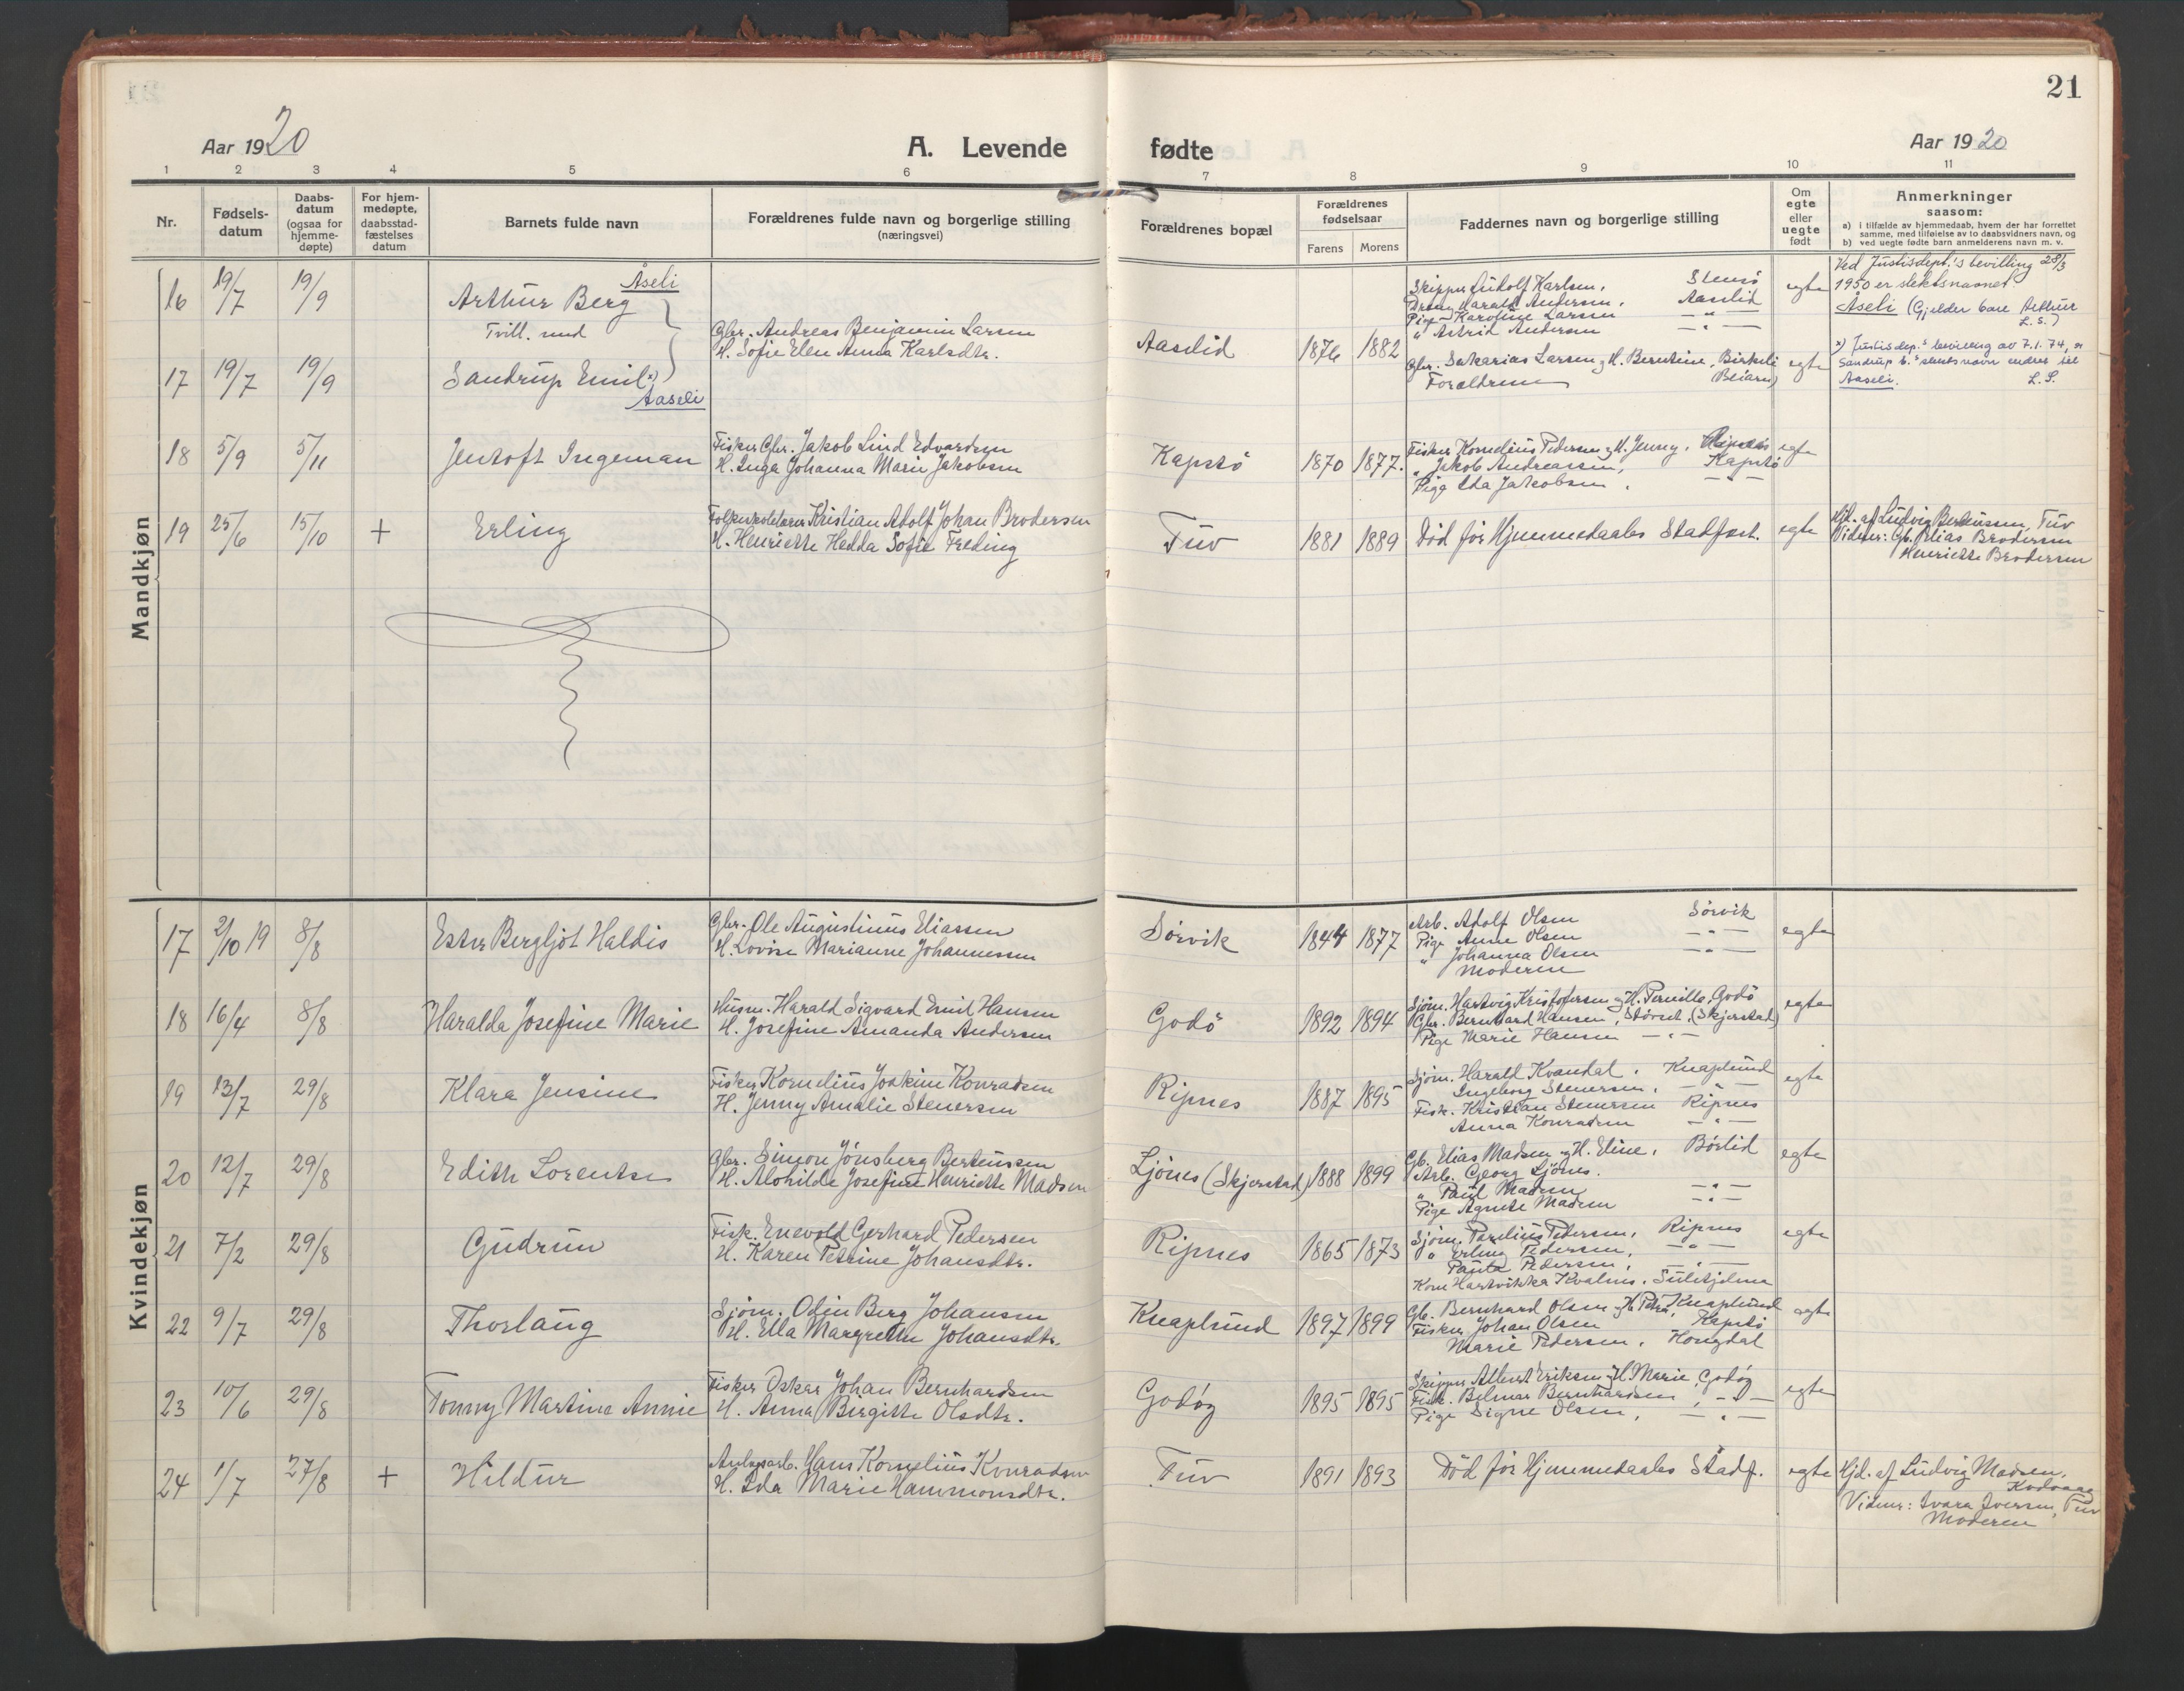 21
Aar 1920
A. Levende fødte
Aar 1920
1 2 3 4 5 6 7 8 9 10 11
Nr.
Fødsels-
datum
Daabs-
datum
(ogsaa for
hjemme-
døpte)
For hjem-
medøpte,
daabsstad-
fæstelses
datum
Barnets fulde navn
Forældrenes fulde navn og borgerlige stilling
(næringsvei)
Forældrenes bopæl
Forældrenes
fødselsaar
Farens Morens
Faddernes navn og borgerlige stilling
Om
egte
eller
uegte
født
Anmerkninger
saasom:
a) i tilfælde av hjemmedaab, hvem der har forrettet
samme, med tilføielse av to daabsvidners navn, og
b) ved uegte fødte barn anmelderens navn m. v.
Mandkjøn
16 19/7 19/9
Åseli
Arthur Berg
Tvill. med
Gbr. Andreas Benjamin Larsen
H. Sofie Elen Anna Karlsdtr.
Aaselid 1876 1882
Skipper Ludolf Karlsen, Stensö
Dreng Harald Andersen, Aaselid
Pige Karoline Larsen — " —
" Astrid Andersen — " —
egte
Ved Justisdept.'s bevilling 28/3
1950 er slektsnavnet
Åseli (Gjelder bare Arthur
L. S.)
17 19/7 19/9
Sandrup Emil x)
Aaseli
Gbr. Sakarias Larsen og H. Berntine, Birkeli
Forældrene Beiaren)
egte
x) Justisdep.'s bevilling av 7.1.74, er
Sandrup E.'s slektsnavn endret til
Aaseli. L. S.
18 5/9 5/11 Jentoft Ingeman
Fisker Gbr. Jakob Lind Edvardsen
H. Inga Johanna Marie Jakobsen
Kapstö 1870 1877.
Fisker Kornelius Pedersen og H. Jenny, Ripnes
" Jakob Andreassen, Kapstö
Pige Ida Jakobsen, — " —
egte
19 25/6 15/10 + Erling
Folkeskolelærer Kristian Adolf Johan Brodersen
H. Henriette Hedda Sofie Freding
Tuv 1881 1889 Död för Hjemmedaabs Stadfæst. egte
Hjd. af Ludvig Berteussen, Tuv
Vidner: Gb. Elias Brodersen
Henriette Brodersen
Kvindekjøn
17 2/10 19 8/8 Ester Bergljot Haldis
Gbr. Ole Augustinus Eliassen
H. Lovise Marianne Johannessen
Sörvik 1844 1877
Arb. Adolf Olsen Sörvik
Pige Anne Olsen — " —
" Johanna Olsen — " —
Moderen
egte
18 16/4 8/8 Haralda Josefine Marie
Husm. Harald Sigvard Emil Hansen
H. Josefine Amanda Andersen
Godö 1892 1894
Sjöm. Hartvig Kristofersen og H. Pernille, Godö
Gbr. Bernhard Hansen, Störset, (Skjerstad)
Pige Marie Hansen — " —
egte
19 13/7 29/8 Klara Jensine
Fisker Kornelius Joakim Konradsen
H. Jenny Amalie Stenersen
Ripnes 1887 1895
Sjöm. Harald Kvandal, Knaplund
Ingeborg Stenersen, — " —
Fisk. Kristian Stenersen Ripnes
Anna Konradsen — " —
egte
20 12/7 29/8 Edith Lorentse
Gbr. Simon Jönsberg Berteussen
H. Alohilde Josefine Henriette Madsen
Ljönes (Skjerstad) 1888 1899
Gb. Elias Madsen og H. Eline, Börlid
Arb. Georg Ljönes.
" Paul Madsen — " —
Pige Agnete Madsen — " —
egte
21 7/2 29/8 Gudrun
Fisk. Enevold Gerhard Pedersen
H. Karen Petrine Johansdtr.
Ripnes 1865 1873
Sjöm. Parelius Pedersen, Ripnes
" Erling Pedersen, — " —
Paula Pedersen, — " —
Kone Hartvikka Kvalnes, Sulitjelma
egte
22 9/7 29/8 Thorlaug
Sjöm. Odin Berg Johansen
H. Ella Margrethe Johansdtr.
Knaplund 1897 1899
Gb. Bernhard Olsen og H. Petra, Knaplund
Fisker Johan Olsen Kapstö
Marie Pedersen, Hongdal
egte
23 10/6 29/8 Tonny Martine Annie
Fisker Oskar Johan Bernhardsen
H. Anna Birgitte Olsdtr.
Godöy 1895 1895
Skipper Albert Eriksen og H. Marie, Godöy
Fisk. Belmar Bernhardsen, — " —
Pige Signe Olsen, — " —
egte
24 1/7 27/8 + Hildur
Anlegsarb. Hans Kornelius Konradsen
H. Ida Marie Hammonsdtr.
Tuv 1891 1893 Död för Hjemmedaabs Stadf. egte
Hjd. af Ludvig Madsen,
Kodvaag
Vidner: Ivara Iversen, Tuv
Moderen